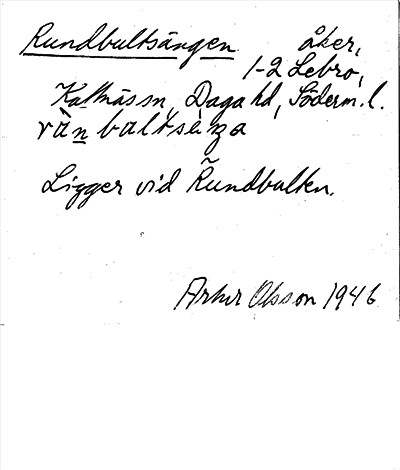 Rundbultsängen åker,
1-2 Lebro,
Kattnäs sn, Daga hd, Söderm. l.
rùnbaltsèŋa
Ligger vid Rundbulten.
Artur Olsson 1946